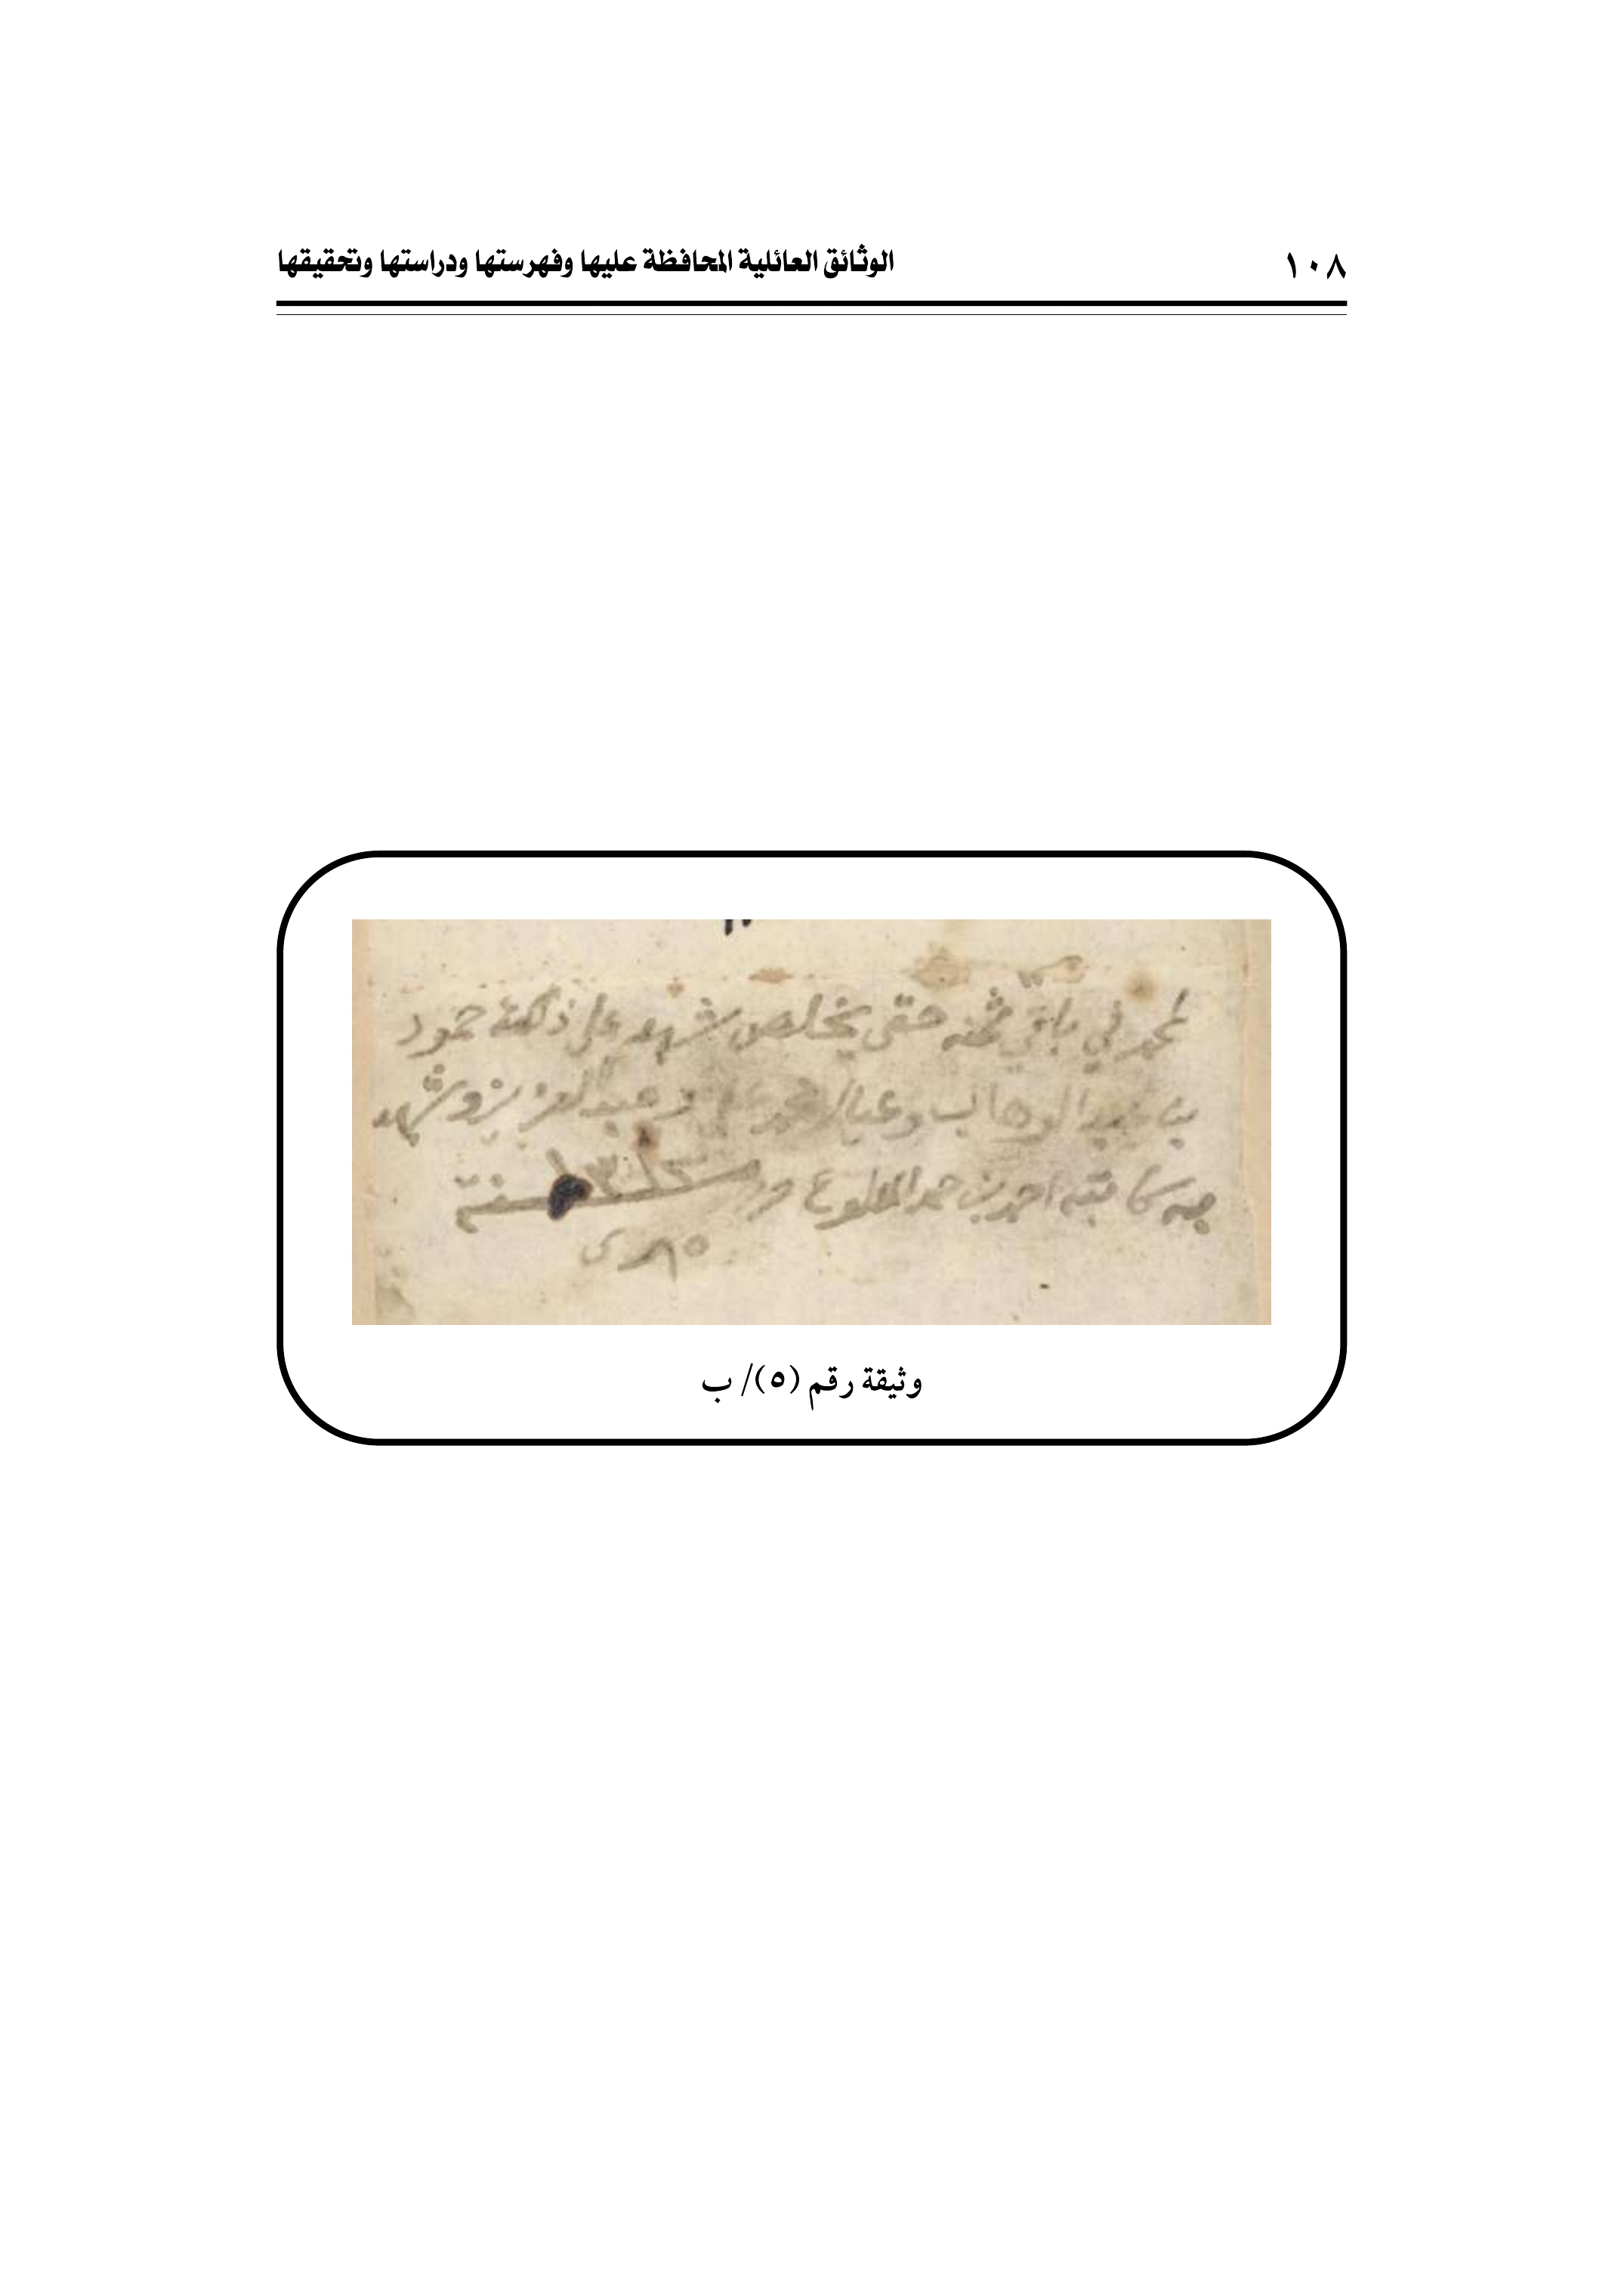 ١٠٨ الوثائق العائلية المحافظة عليها وفهرستها ودراستها وتحقيقها
لمحمد في باقي ثمنه حتى يخلص شهد على ذلك حمود
بن عبدالوهاب و عبدالعزيز وشهد
به كاتبه احمد بن حمد سنة
وثيقة رقم (٥)/ ب